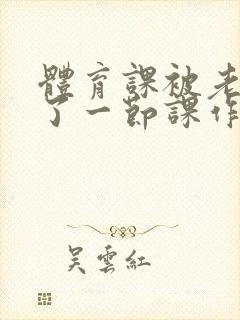 體育課被老
了一節課作
吳雲紅